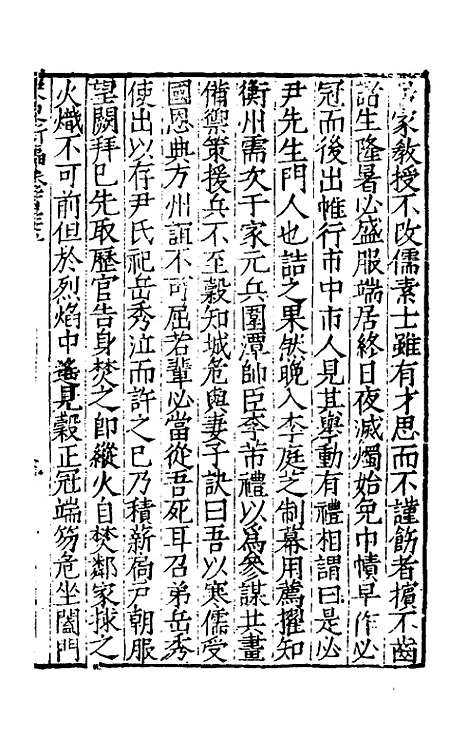 家教授不改儒素士雖有才思而不謹飭者擯不齒
諸生隆暑必盛服端居終日夜滅燭始免巾幘早作必
冠而後出帷行市中市人見其舉動有禮相謂曰是必
尹先生門人也詰之果然晚入李庭芝制幕用薦擢知
衡州需次于家元兵圍潭帥臣李芾禮以爲參謀共畫
備禦策援兵不至穀知城危與妻子訣曰吾以寒儒受
國恩典方州誼不可屈若輩必當從吾死耳召弟岳秀
使出以存尹氏祀岳秀泣而許之已乃積薪宿戶朝服
望闕拜已先取歷官告身焚之卽縱火自焚鄰家捄之
火熾不可前但於烈焰中遙見穀正冠端笏危坐闔門